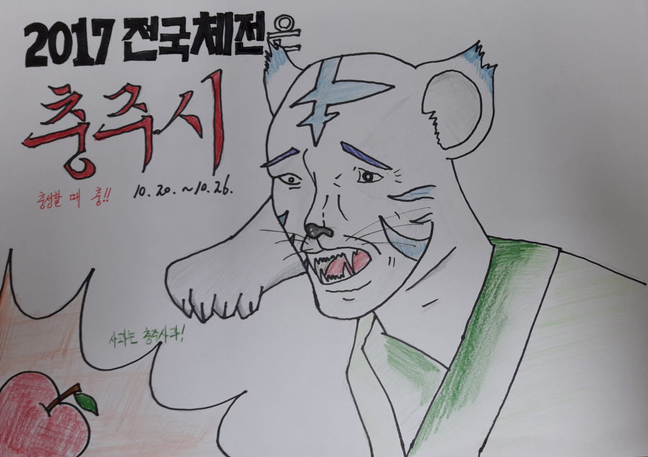 2017 전국체전은
충주시
충성할 때 충!!
10.20.~10.26.
사과는 충주사과!